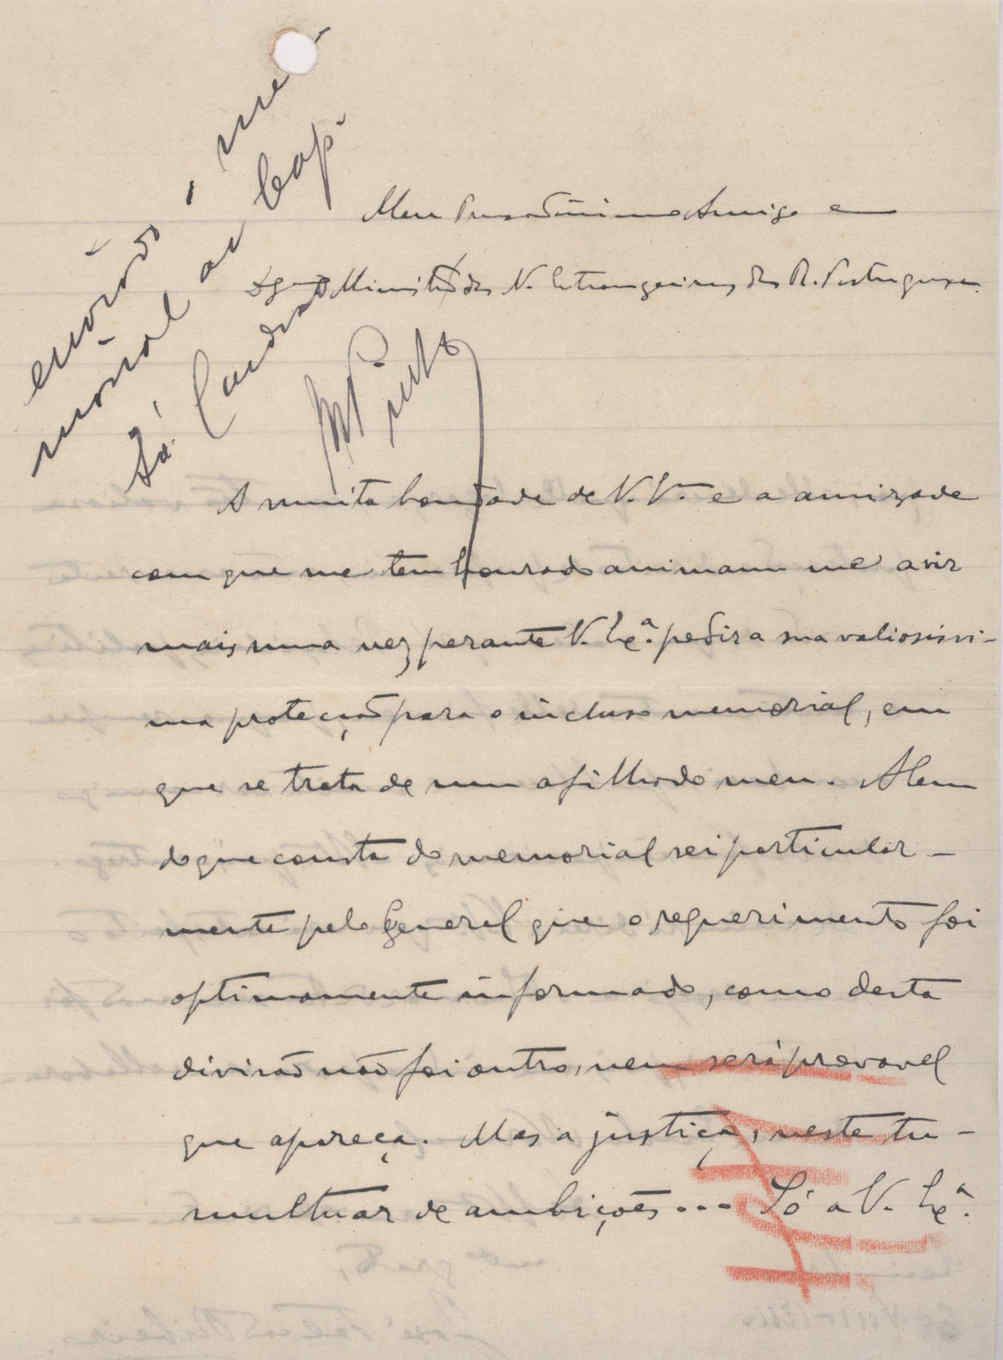 enviado, me
morial ao Cap.
Sá Cardoso
Meu Presadissimo Amigo e
Dgno Ministro dos N. Estrangeiros da R. Portuguesa
A muita bondade de V. V. e a amizade
com que me tem honrado animam me a vir
mais uma vez perante V. Exª. pedir a sua valiosissi-
ma proteção para o incluso memorial, em
que se trata de um afilhado meu. Alem
do que consta do memorial sei particular-
mente pelo General que o requerimento foi
optimamente informado, como desta
divisão não foi outro, nem será provavel
que apareça. Mas a justiça, neste tu-
multuar de ambições... Só a V. Exª.